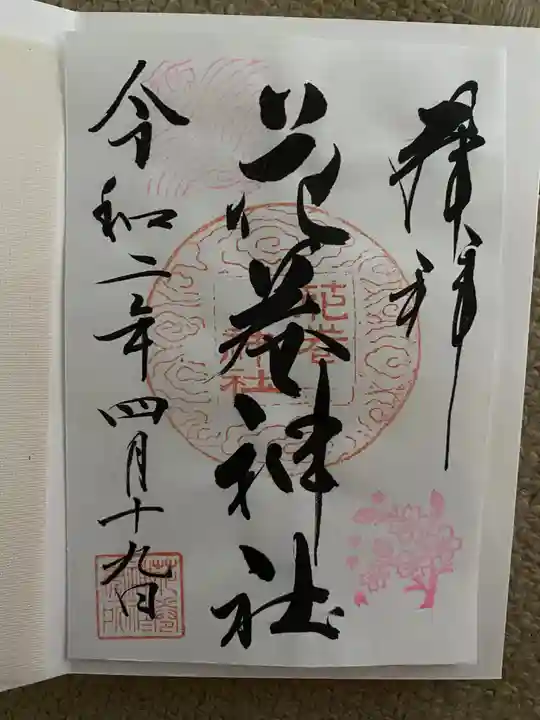 拝拝
花巻神社
花巻
神社
令和二年四月十九日